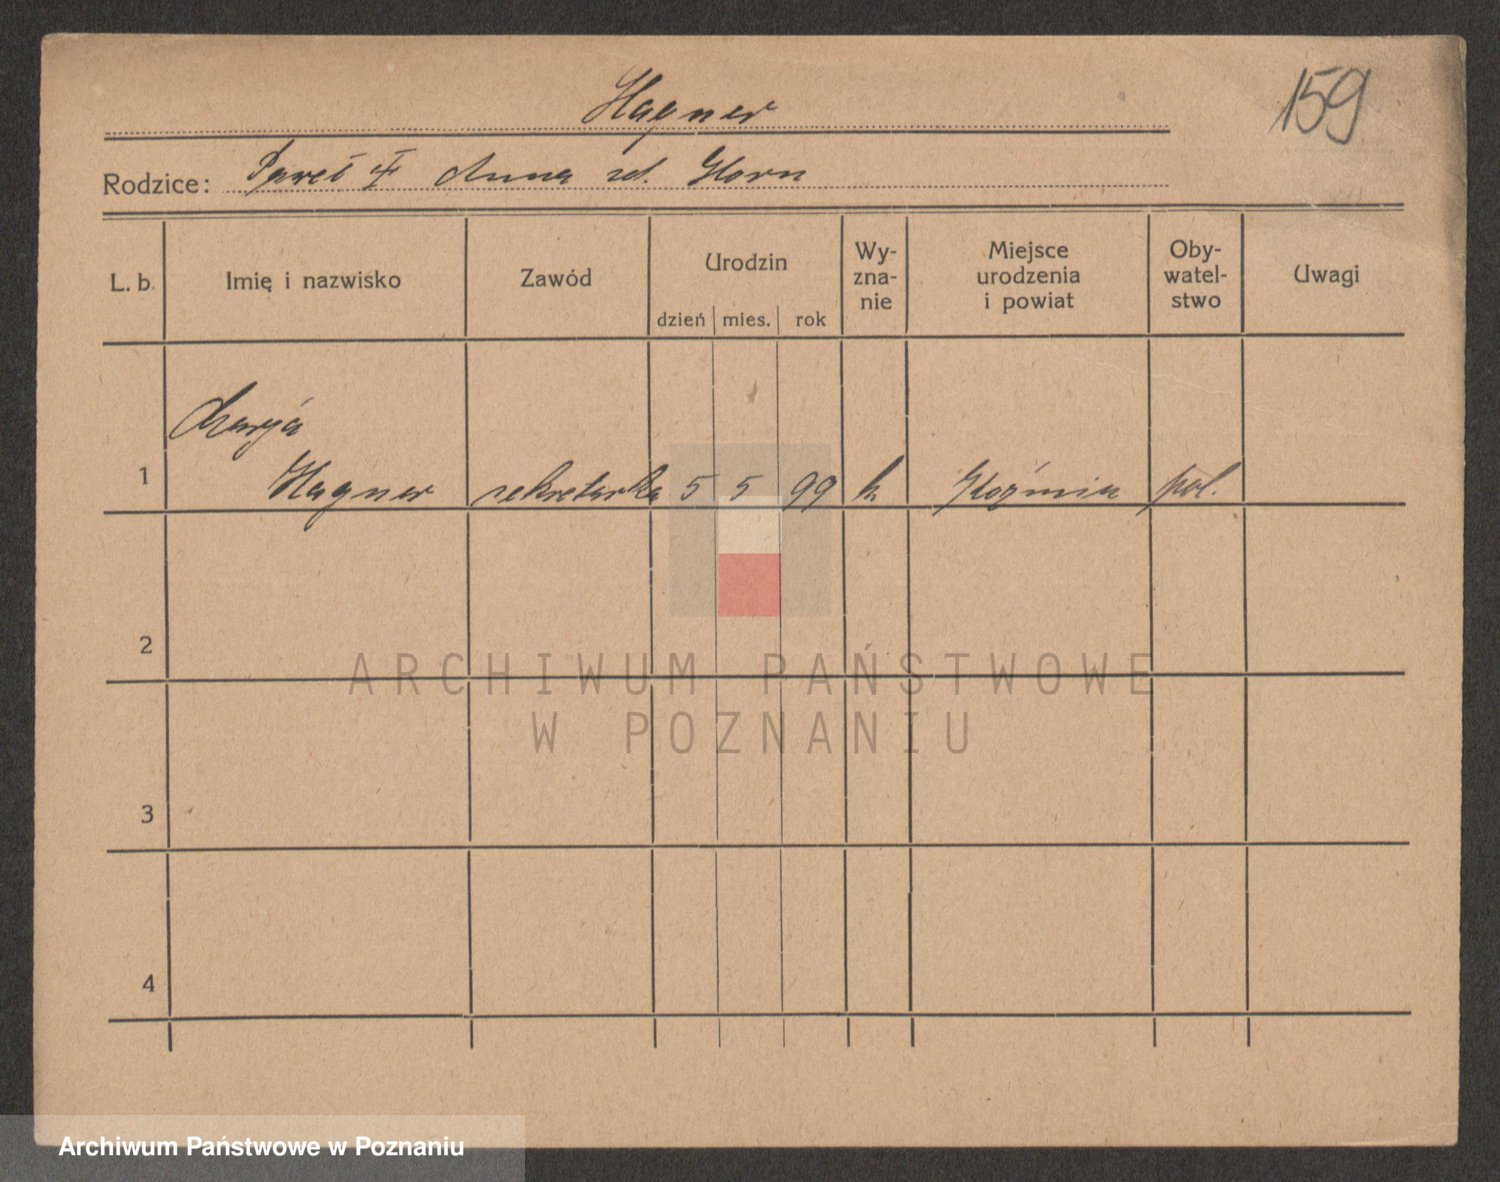 159
Hagner
Rodzice: Paweł i Anna zd. Horn
L. b. Imię i nazwisko Zawód Urodzin dzień mies. rok Wy-zna-nie Miejsce urodzenia i powiat Oby-watel-stwo Uwagi
Marja
1 Hagner sekretarka 5 5 99 k Koźmin pol.
2
ARCHIWUM PAŃSTWOWE
W POZNANIU
3
4
Archiwum Państwowe w Poznaniu